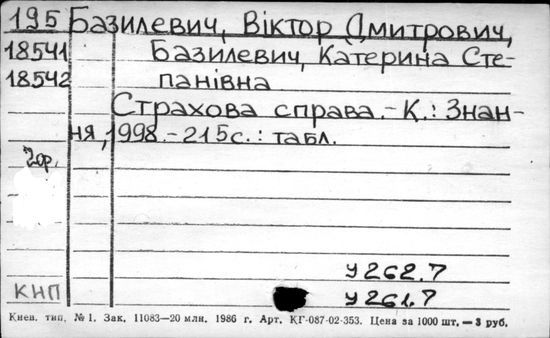 195 Базилевич, Віктор Дмитрович,
18541 Базилевич, Катерина Сте-
18542 панівна
Страхова справа.-К.: Знан-
ня, 1998.-215с.: табл.
2ор.
У262.7
КНП У261.7
Киев. тип. № 1. Зак. 11083—20 млн. 1986 г. Арт. КГ-087-02-353. Цена за 1000 шт. — 3 руб.